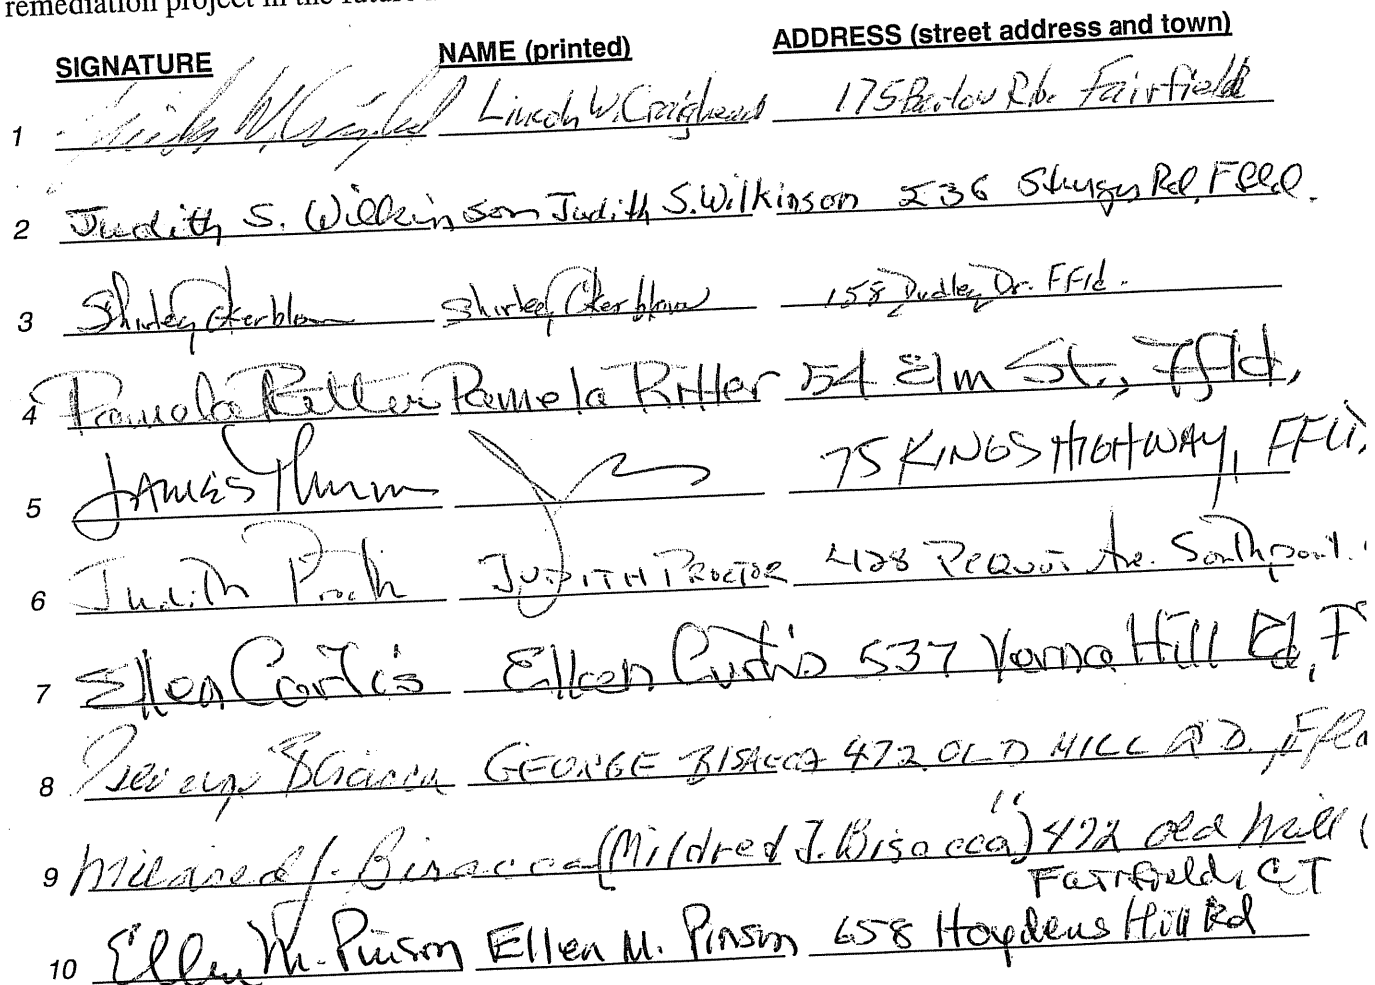 remediation project in the future
SIGNATURE NAME (printed) ADDRESS (street address and town)
1 Lincoln W. Craighead 175 Barlow Rd. Fairfield
2 Judith S. Wilkinson Judith S. Wilkinson 236 Sturges Rd, Ffld.
3 Shirley Okerblom Shirley Okerblom 158 Dudley Dr. Ffld.
4 Pamela Ritter Pamela Ritter 54 Elm St., Ffld,
5 JAMES 75 KINGS HIGHWAY, FFLD,
6 Judith JUDITH PROCTOR 428 PEQUOT Ave. Southport.
7 Ellen Curtis Ellen Curtis 537 Verna Hill Rd, F
8 George Bisacca GEORGE BISACCA 472 OLD MILL RD. Ffld
9 Mildred J. Bisacca (Mildred J. Bisacca) 472 Old Mill (
Fairfield, CT
10 Ellen M. Pinson Ellen M. Pinson 658 Hoydens Hill Rd